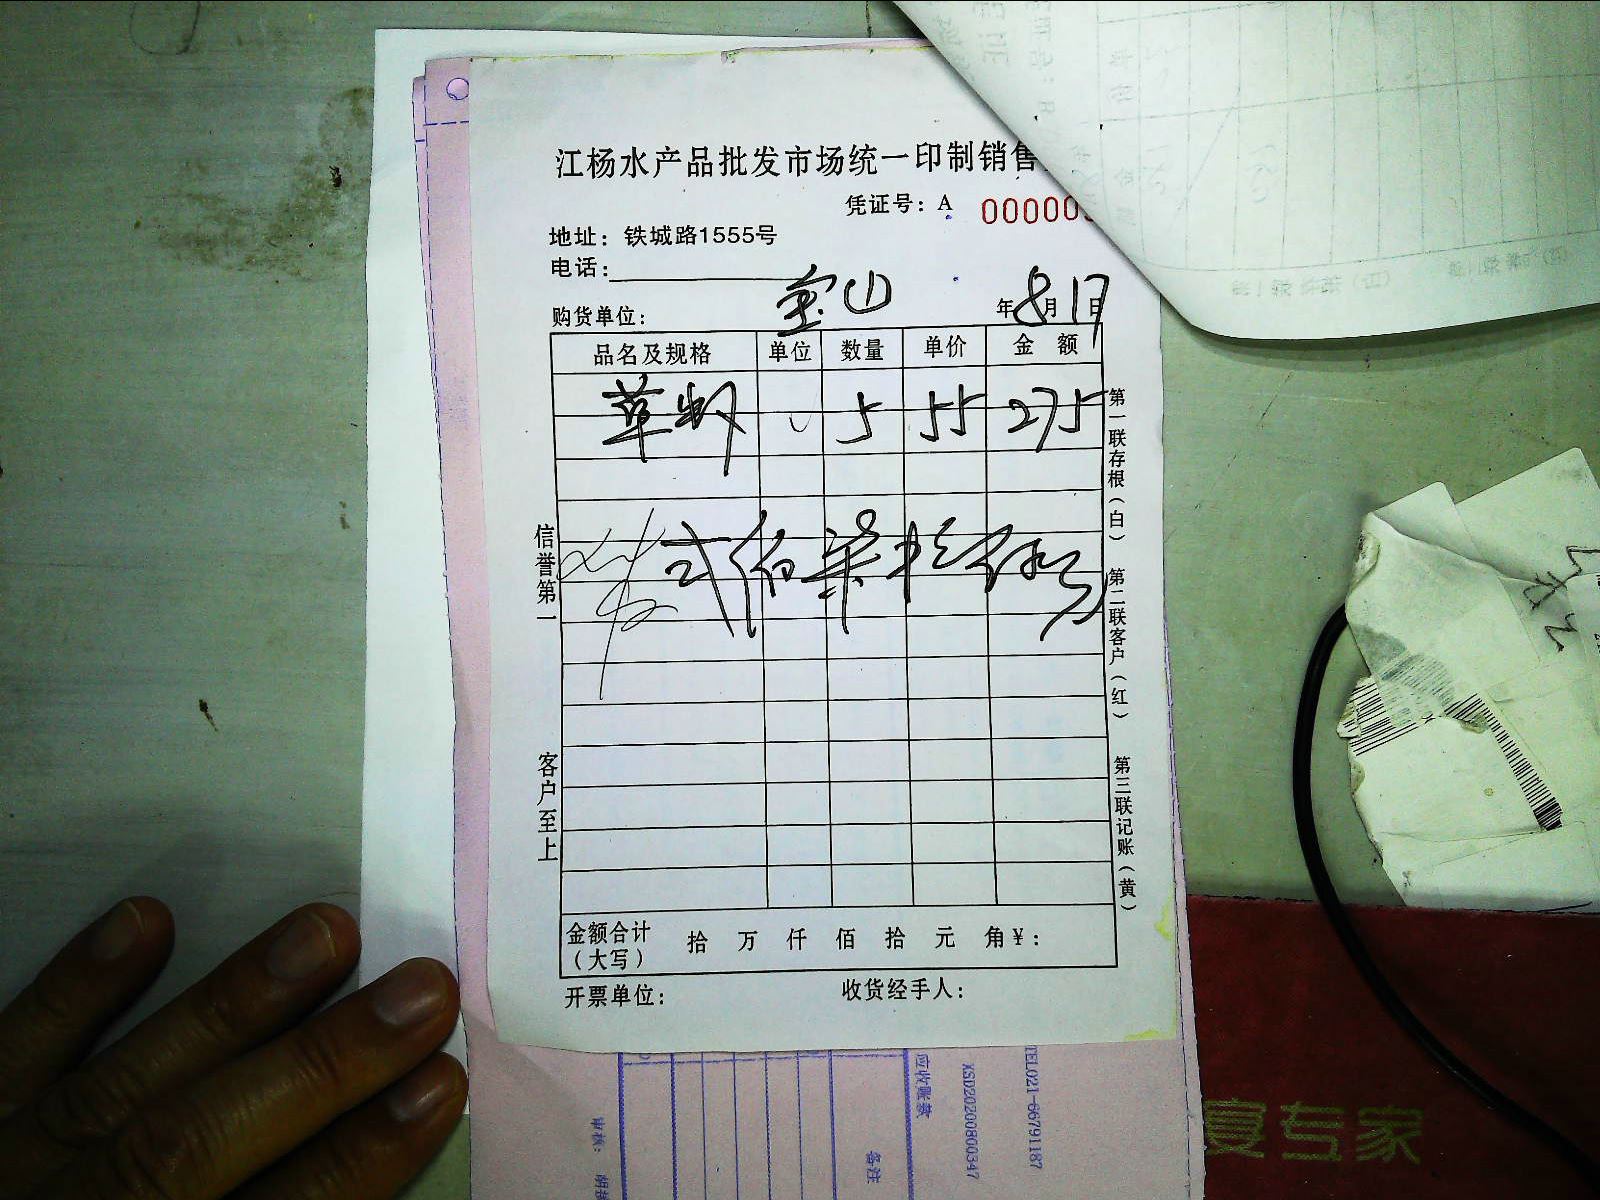 江杨水产品批发市场统一印制销售
凭证号：A 000000
地址：铁城路1555号
电话：
购货单位： 宝山 年8月17日
品名及规格 单位 数量 单价 金额
草虾 5 55 275
弍佰柒拾伍
信誉第一
客户至上
第一联存根（白）
第二联客户（红）
第三联记账（黄）
金额合计（大写） 拾 万 仟 佰 拾 元 角¥：
开票单位： 收货经手人：
应收账款
备注
XSD20200800347
TEL021-66791187
审核：
宴专家